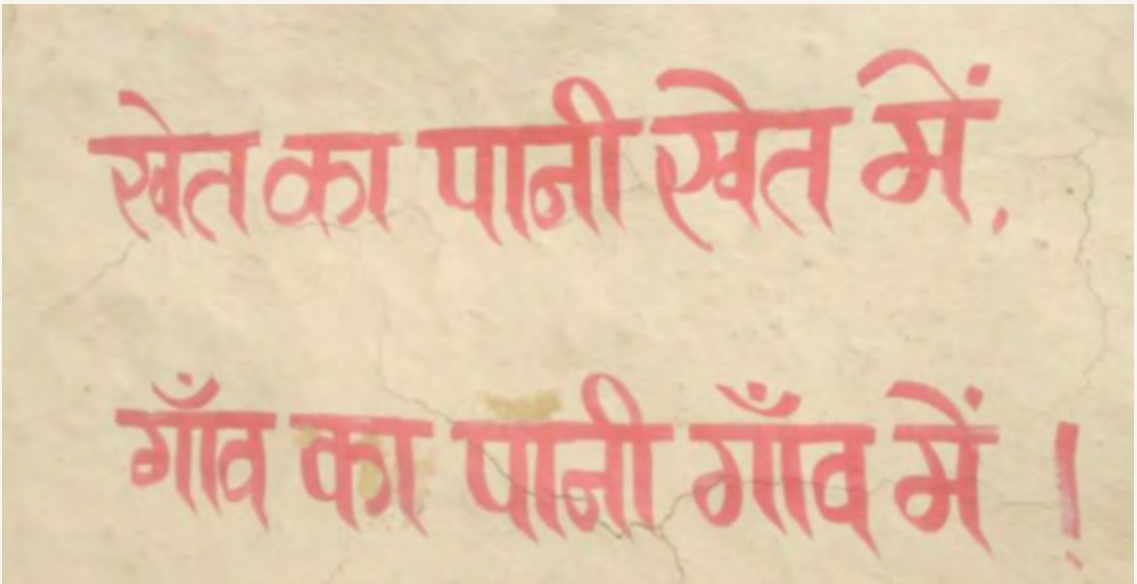 खेत का पानी खेत में.
गाँव का पानी गाँव में !